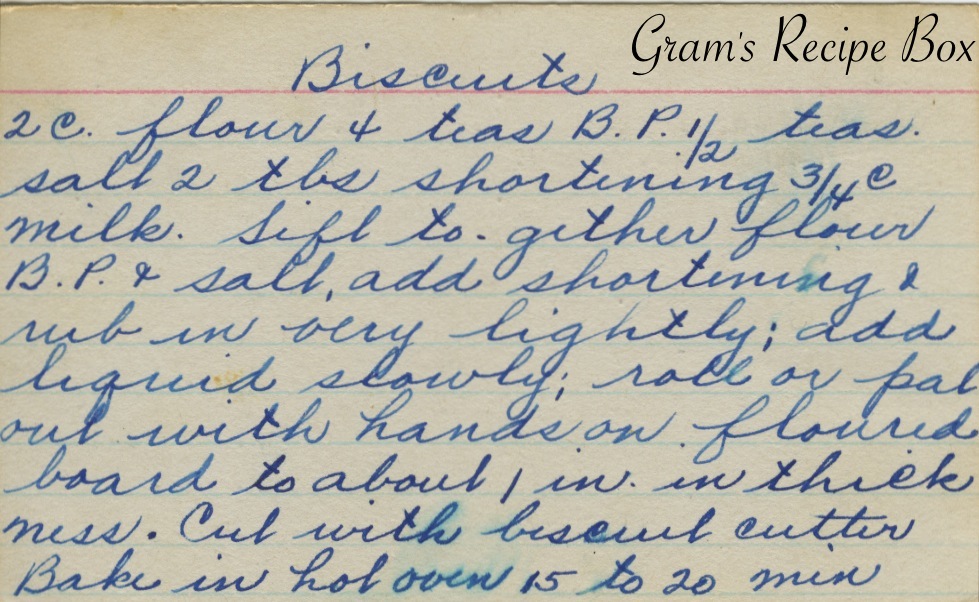 Gram's Recipe Box
Biscuits
2 c. flour 4 teas B.P. 1/2 teas.
salt 2 tbs shortening 3/4 c
milk. Sift to-gether flour
B.P. & salt, add shortening &
rub in very lightly; add
liquid slowly; roll or pat
out with hands on floured
board to about 1 in. in thick
ness. Cut with biscuit cutter
Bake in hot oven 15 to 20 min